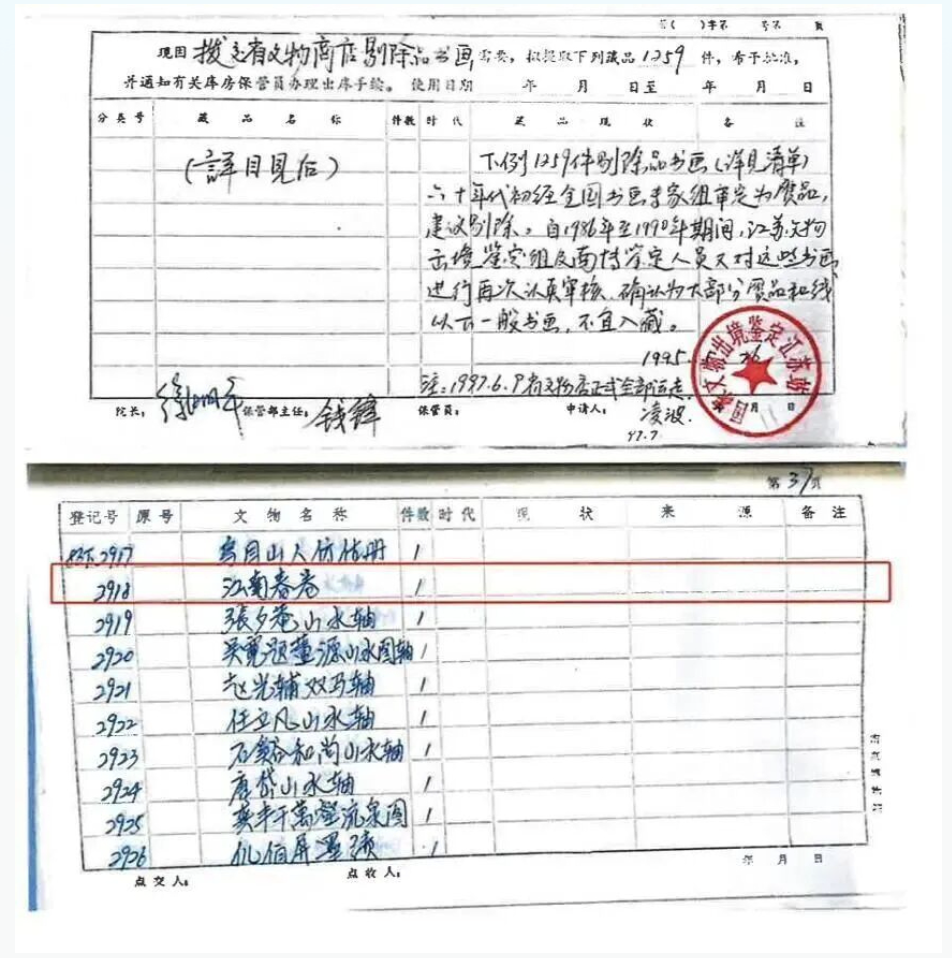 第( )字第 号第 页
现因 拨交省文物商店剔除品书画 需要，拟提取下列藏品 1259 件，希予批准，
并通知有关库房保管员办理出库手续。 使用日期 年 月 日至 年 月 日
分类号 藏品名称 件数 时代 藏品现状 备注
(詳目見后)
下例1259件剔除品书画(详见清单)
六十年代初经全国书画专家组审定为赝品,
建议剔除。自1986年至1990年期间,江苏文物
出境鉴定组及南博鉴定人员又对这些书画
进行再次认真审核,确认为大部分赝品和线
以下一般书画,不宜入藏。
1995. 26
国家文物出境鉴定江苏站
月 日
注:1997.6.9省文物店正式全部运走.
院长： 徐湖平 保管部主任： 钱锋 保管员： 申请人： 凌波.
97.7
第 37 页
登记号 原号 文物名称 件数 时代 现状 来源 备注
2917 乌目山人仿古册 1
2918 江南春卷 1
2919 張夕菴山水轴 1
2920 吴寬题董源山水图轴 1
2921 赵光辅双马轴 1
2922 任立凡山水轴 1
2923 石谿和尚山水轴 1
2924 唐岱山水轴 1
2925 龚半千萬壑流泉图 1
2926 屏墨 1
年 月 日
点交人： 点收人：